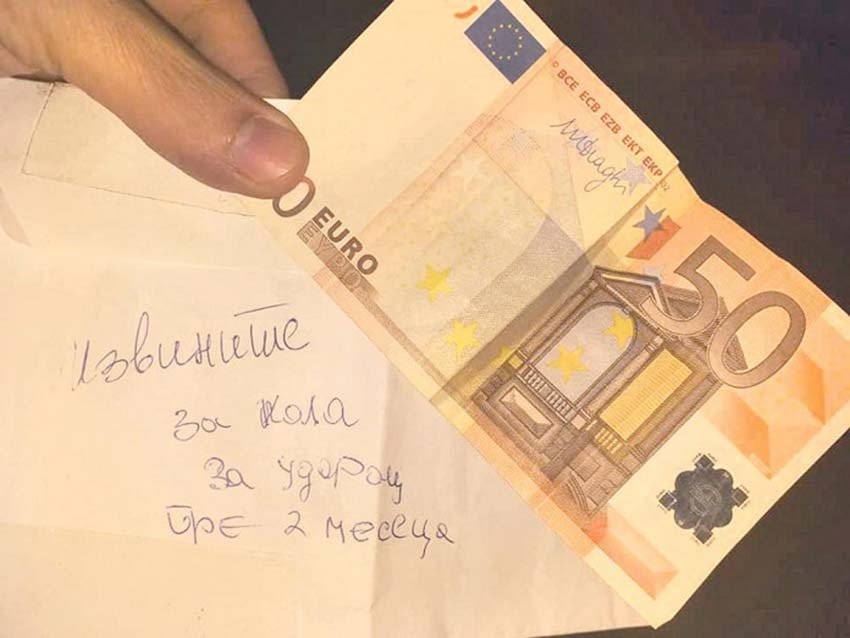 © BCE ECB EZB EKT EKP
0 EURO
ΕΥΡΩ
50
извините
за кола
за ударац
пре 2 месеца